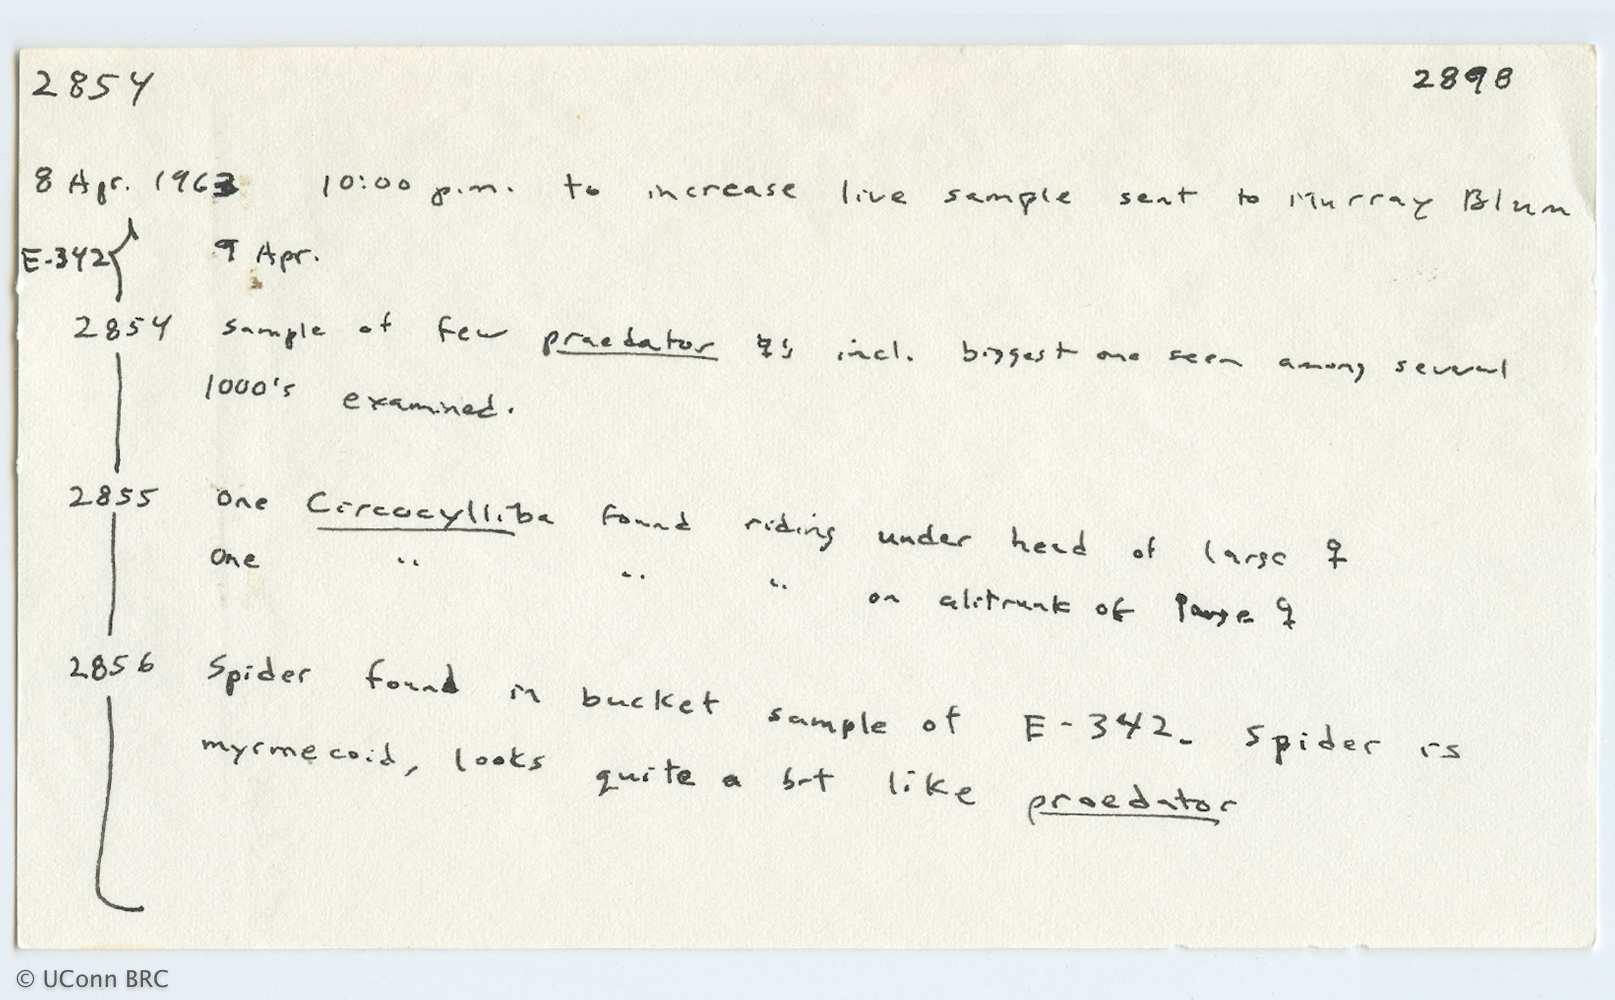 2854 2898
8 Apr. 1963 10:00 p.m. to increase live sample sent to Murray Blum
E-342 9 Apr.
2854 sample of few praedator ☿'s incl. biggest one seen among several
1000's examined.
2855 One Circocylliba found riding under head of large ☿
One " " " on alitrunk of large ☿
2856 Spider found in bucket sample of E-342. Spider is
myrmecoid, looks quite a bit like praedator
© UConn BRC